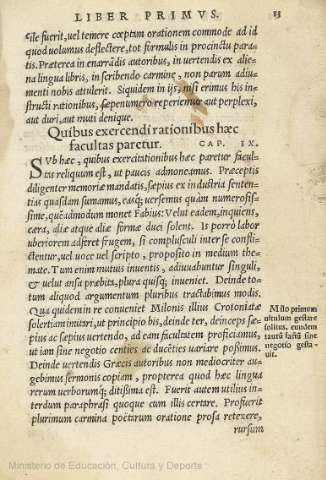 LIBER PRIMVS. 13
cile fuerit, uel temere cœptum orationem commode ad id
quod uolumus deflectere, tot formulis in procinctu para-
tis. Præterea in enarrādis autoribus, in uertendis ex alie-
na lingua libris, in scribendo carmine, non parum adiu-
menti nobis attulerit. Siquidem in ijs, nisi erimus his in-
structi rationibus, sæpenumero reperiemur aut perplexi,
aut duri, aut muti denique.
Quibus exercendi rationibus hæc
facultas paretur. CAP. IX.
SVb hæc, quibus exercitationibus hæc paretur facul-
tas reliquum est, ut paucis admoneamus. Præceptis
diligenter memoriæ mandatis, sæpius ex industria senten-
tias quasdam sumamus, easq́; uersemus quàm numerosis-
sime, quēadmodum monet Fabius: Velut eadem, inquiens,
cæra, aliæ atque aliæ formæ duci solent. Is porrò labor
uberiorem adferet frugem, si complusculi inter se consti-
ctentur, uel uoce uel scripto, proposito in medium the-
mate. Tum enim mutuis inuentis, adiuuabuntur singuli,
& uelut ansa præbita, plura quisq; inueniet. Deinde to-
tum aliquod argumentum pluribus tractabimus modis.
Qua quidem in re conueniet Milonis illius Crotoniatæ
solertiam imitari, ut principio bis, deinde ter, deinceps sæ-
pius ac sæpius uertendo, ad eam facultatem proficiamus,
ut iam sine negotio centies ac ducēties uariare possimus.
Deinde uertendis Græcis autoribus non mediocriter au-
gebimus sermonis copiam, propterea quod hæc lingua
rerum uerborumq; ditissima est. Fuerit autem utilius in-
terdum paraphrasi quoque cum illis certare. Profuerit
plurimum carmina poëtarum oratione prosa retexere,
rursum
Milo primum
uitulum gestare
solitus, eundem
taurū factū sine
negotio gesta-
uit.
Ministerio de Educación, Cultura y Deporte